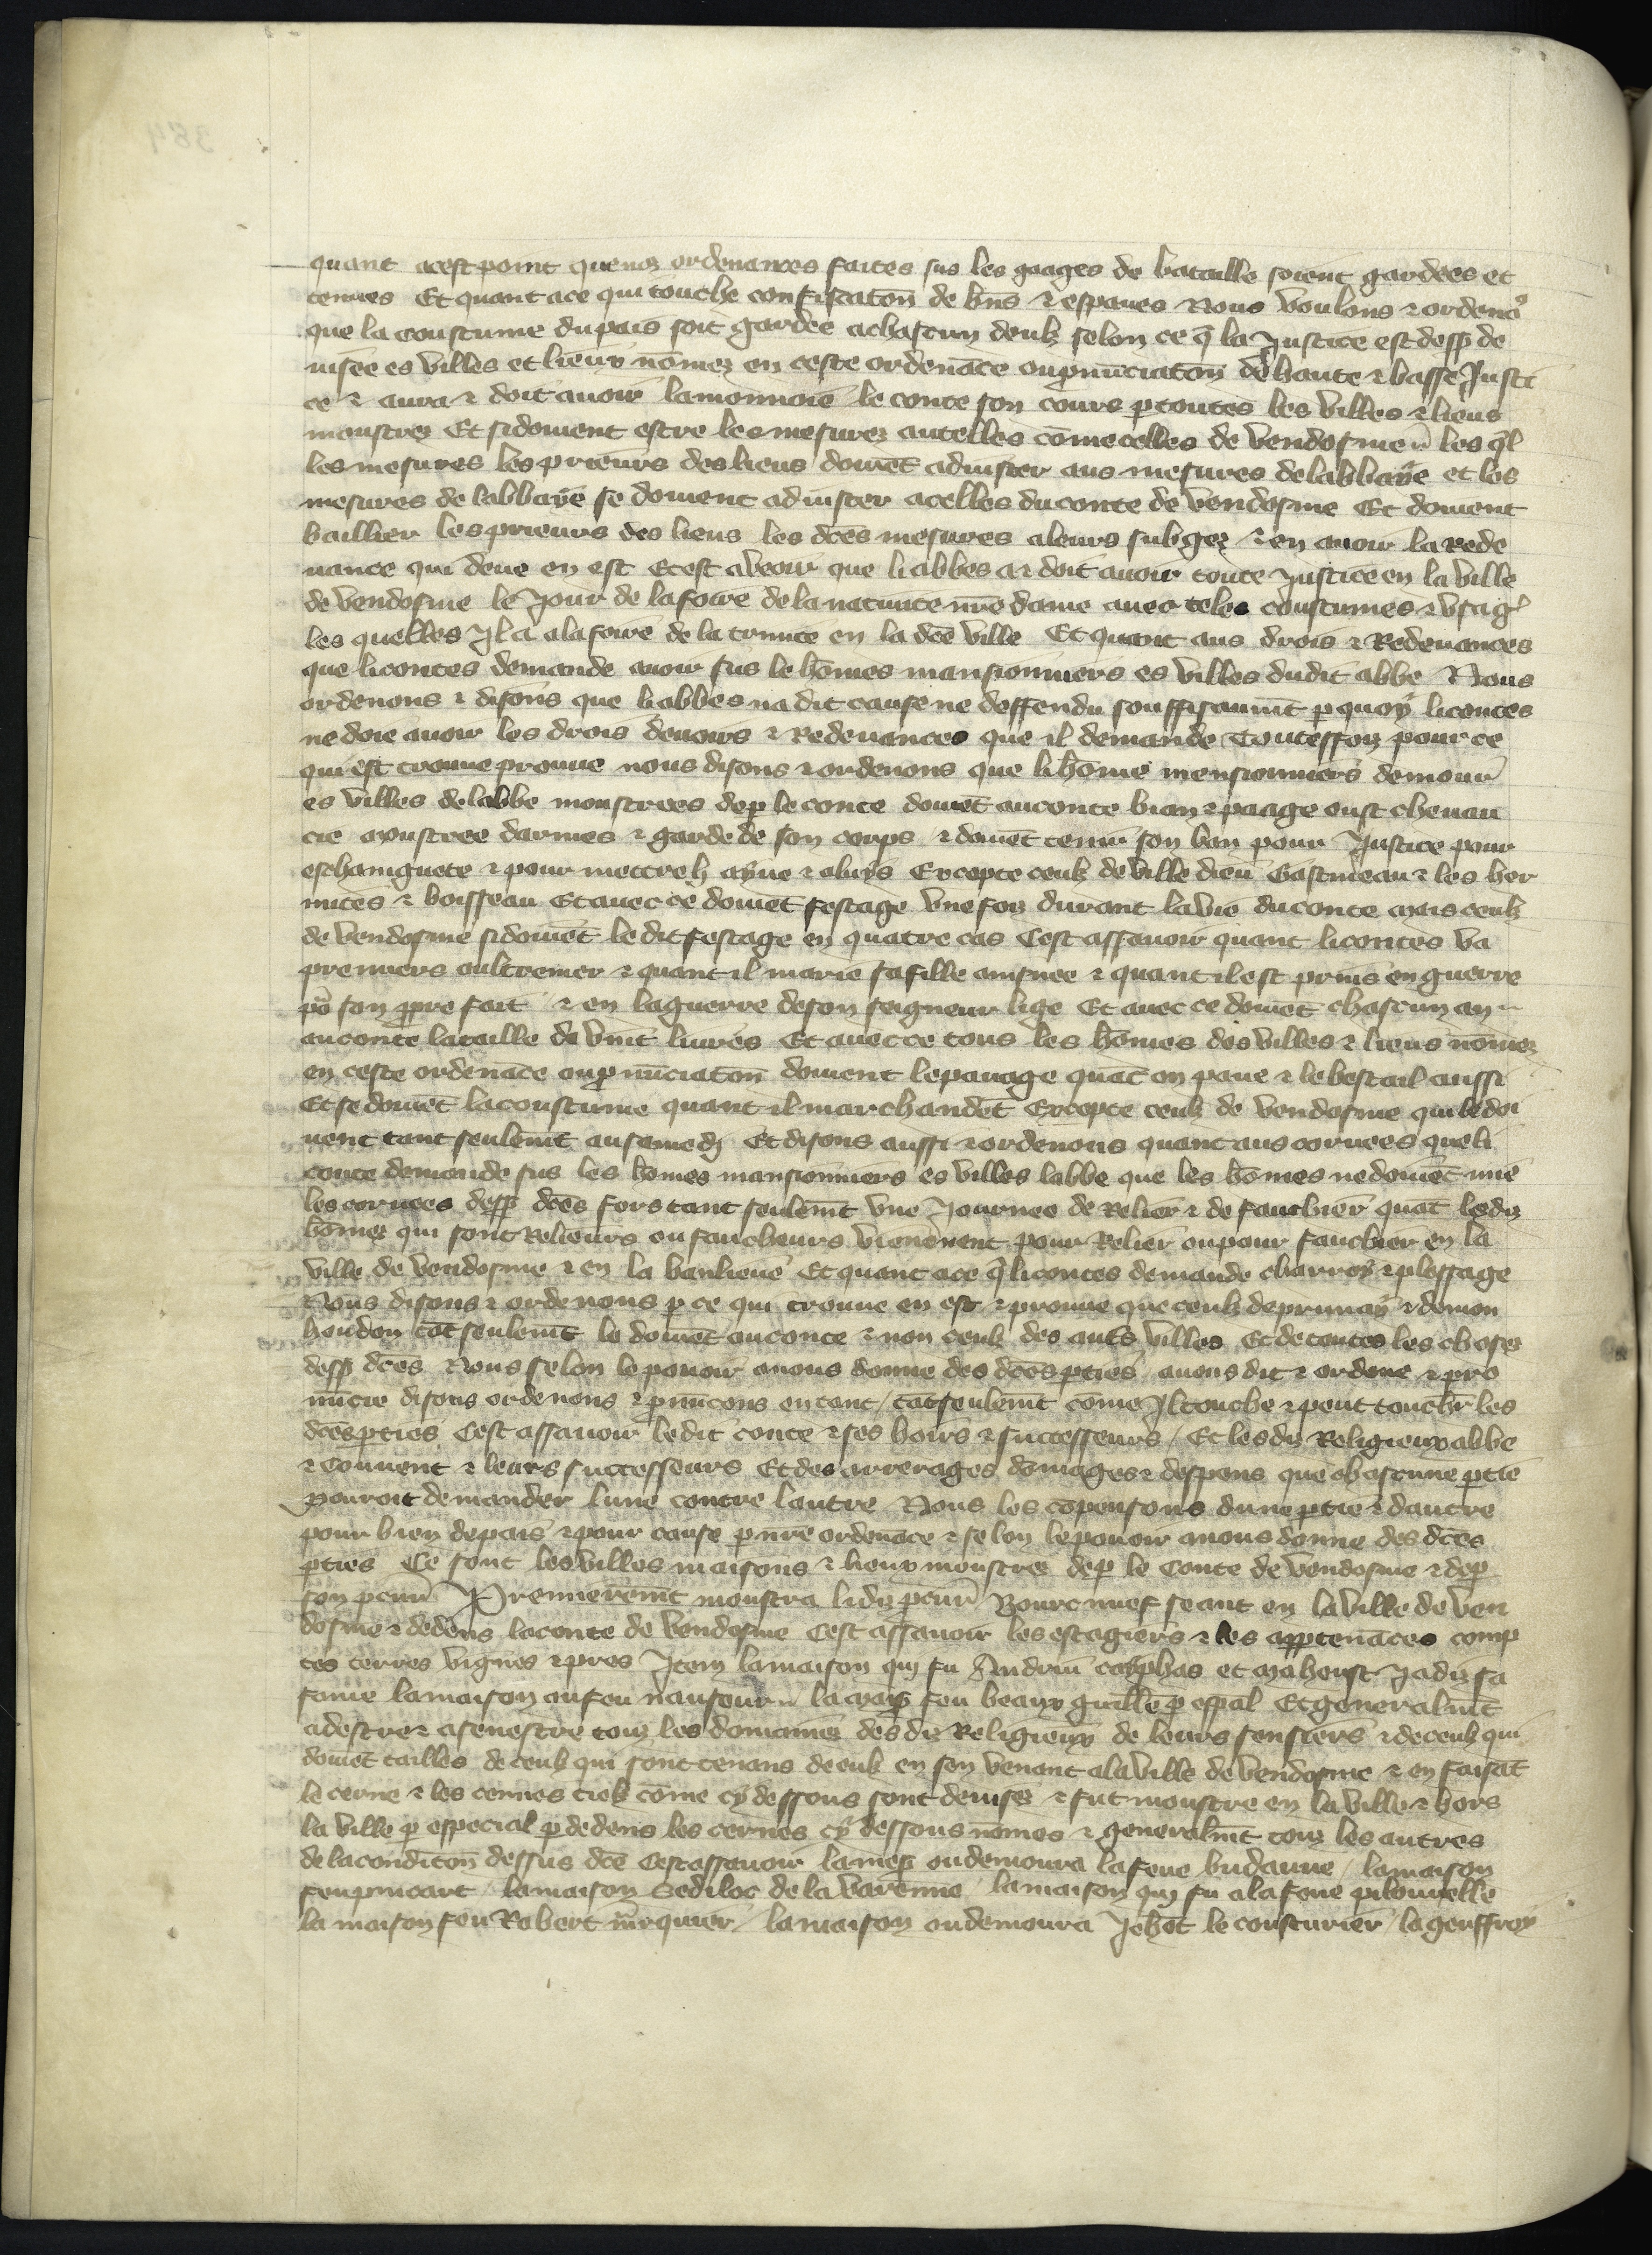 quant acest point que noz ordenances faites sus les gaages de bataille soient gardees et
tenues Et quant ace qui touche confiscatoñ de bñs ⁊ espaues Nous voulons ⁊ ordenoꝰ
que la coustume du pais soit gardee achascun deulz selon ce q̄ la Justice est dess᷒ de
uisee es villes et lieux nōmez en ceste ordenāce ou ꝓnūciatoñ de haute ⁊ basse Justi
ce ⁊ aura ⁊ doit auoir la monnoie le conte son cours ꝑ toutes les villes ⁊ lieus
monstrez Et si doiuent estre les mesurez autelles cōme celles de vendosme les q̄l
les mesures les prieurs des lieus doiuēt adiuster aus mesures de labbaye et les
mesures de labbaye se doiuent adiuster acelles du conte de vendosme Et doiuent
baillier les prieurs des lieus les dc̄es mesures aleurs subgez ⁊ en auoir la Rede
uance qui deue en est Et est aveoir que li abbes a ⁊ doit auoir toute Justice en la ville
de vendosme le Jour de la foire de la natiuite nr̄e dame auec teles coustumes ⁊ vsag᷒
les quelles Jl a ala foire de la trinite en la dc̄e ville Et quant aus drois ⁊ Redeuances
que li contes demande auoir sus le hōmes mansionniers es villes dudit abbe Nous
ordenons ⁊ disons que li abbes na dit cause ne deffendu souffisaum̄t ꝑ quoy li contes
ne doie auoir les drois deuoirs ⁊ Redeuances que il demande Toutesfoiz pour ce
qui est trouue prouue nous disons ⁊ ordenons que li hōme mensionniers demour᷒
es villes de labbe monstrees de ꝑ le conte doiuēt au conte bian ⁊ paage oust cheuau
cie monstree darmes ⁊ garde de son corps ⁊ doiuēt tenir son ban pour Justice pour
eschauguete ⁊ pour mettre h ayue ⁊ abuys Excepte ceulz de ville dieu Gastineau ⁊ les her
mites ⁊ boisseau Et auec ce doiuēt festage vne foiz durant la vie du conte mais ceulz
de vendosme si doiuēt le dit festage en quatre cas Cest assauoir quant li contes va
premiers oultremer ⁊ quant il marie sa fille ainsnee ⁊ quant il est prins en guerre
po᷒ son ꝓpre fait ⁊ en la guerre de son seigneur lige Et auec ce doiuēt chascun an
au conte la taille de vint liures Et auec ce tous les hōmes des villes ⁊ lieus nōmez
en ceste ordenāce ou ꝓnūciatoñ doiuent le panage quāt on pane ⁊ le bestail aussi
Et se doiuēt la coustume quant il marchandēt Excepte ceulz de vendosme qui le doi
uent tant seulem̄t au samedj Et disons aussi ⁊ ordenons quant aus coruees que li
conte demande sus les hōmes mansionniers es villes labbe que les hōmes ne doiuēt mie
les coruees dess᷒ dc̄es fors tant seulem̄t vne Journee de Relier ⁊ de fauchier quāt lesdiz
hōmes qui sont Relieurs ou faucheurs viennent pour Relier ou pour fauchier en la
ville de vendosme ⁊ en la banlieue Et quant ace q̄ li contes demande charroy ⁊ plessage
Nous disons ⁊ ordenons ꝑ ce qui trouue en est ⁊ prouue que ceulz de prunay ⁊ de mon
houdon tāt seulem̄t le doiuēt au conte ⁊ non ceulz des aut̄s villes Et de toutes les choses
dess᷒ dc̄es Nous selon le pouoir anous donne des dc̄es ꝑties auons dit ⁊ ordene ⁊ pro
nūcie disons ordenons ⁊ ꝓnūcons en tant / tāt seulem̄t cōme Jl touche ⁊ peut touch̄r les
dc̄es ꝑties Cest assauoir ledit conte ⁊ ses hoirs ⁊ successeurs / Et lesdiz Religieux abbe
⁊ Couuent ⁊ leurs successeurs Et des arrerages dōmages ⁊ despens que chascune ꝑtie
pouroit demander lune contre lautre Nous les cōpensons dune ꝑtie ⁊ dautre
pour bien de pais ⁊ pour cause ꝑ nr̄e ordenāce ⁊ selon le pouoir anous donne des dc̄es
ꝑties Ce sont les villes maisons ⁊ lieux monstrez de ꝑ le Conte de vendosme ⁊ de ꝑ
son ꝓcur᷒ Premierem̄t monstra li diz ꝓcur᷒ Bourc nuef seant en la ville de ven
dosme ⁊ dedens la conte de vendosme Cest assauoir les estagiers ⁊ les apꝑtenāces comp
tes terres vignes ⁊ pres Jtem la maison qui fu Andrieu cayphas et mahoust Jadiz sa
fame la maison au feu la mais᷒ feu beaux guill̄e ꝑ esp̄al Et generalm̄t
adestre ⁊ asenestre touz les domaines des diz Religieux de leurs sensiers ⁊ de ceulz qui
doiuēt tailles de ceulz qui sont tenans de eulz en son venant ala ville de vendosme ⁊ en faisāt
le cerne ⁊ les cennes tielz cōme cy dessous sont deuisez ⁊ fut monstre en la ville ⁊ hors
la ville ꝑ especial ꝑ dedens les cernes cy dessous nōmes ⁊ generalm̄t touz les autres
de la conditoñ dessus dc̄e Cest assauoir la mes᷒ ou demoura la feue budanne / la maison
feu / la maison Sedilot de la varenne / la maison qui fu ala feue
la maison feu Robert / la maison ou demoura Jehōt le cousturier / la geuffroy